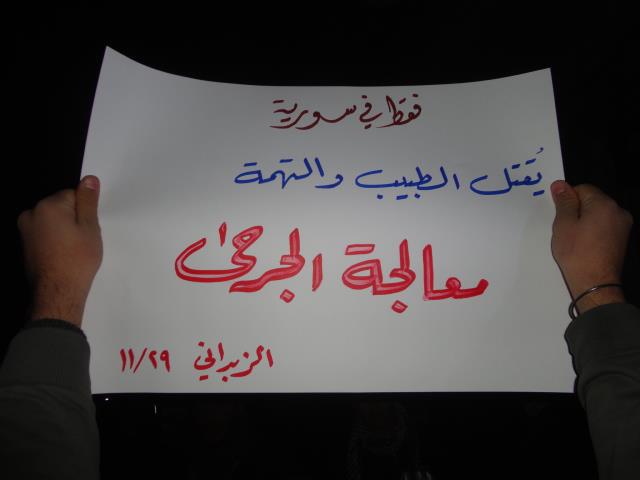 فقط في سورية
يُقتل الطبيب والتهمة
معالجة الجرحى
الزبداني ١١/٢٩